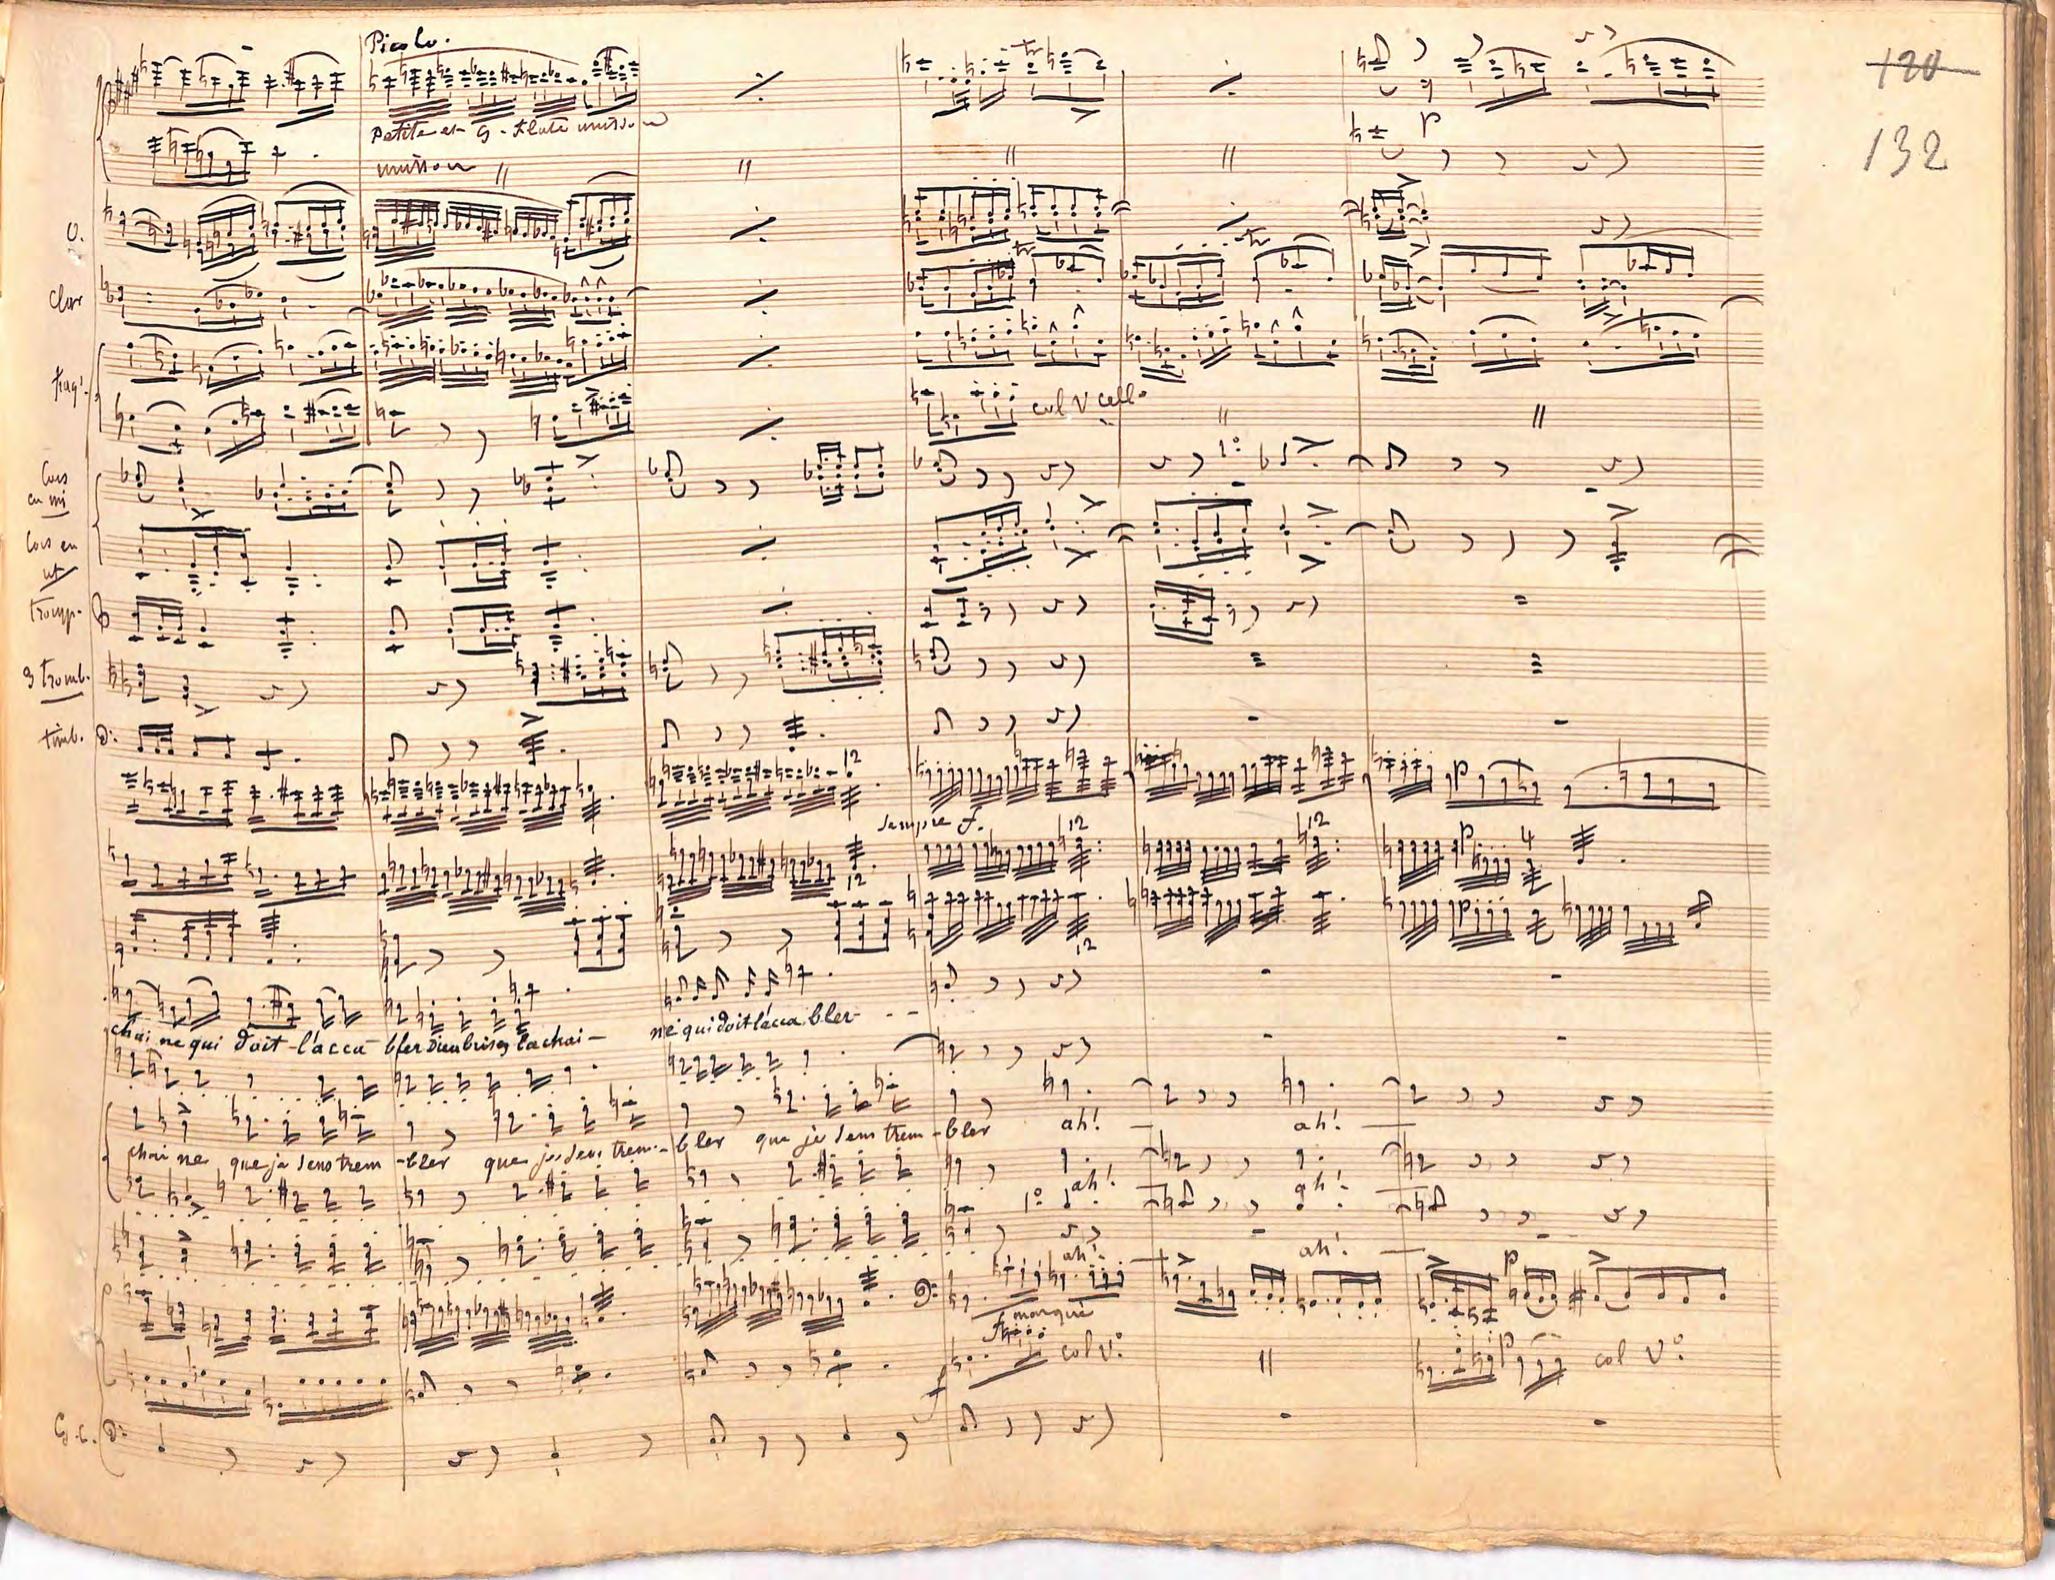 Picolo.
120
132
petite et G. flute unisson
unisson
O.
Clar
fag!
col Vcello
Cors
en mi
1º
Cors en
ut
tromp.
3 tromb.
timb.
12
sempre f.
12
12
p
p
4
12
12
p
chai ne qui doit l'acca bler Dieu brisez la chai - ne qui doit l'acca bler - - -
ah! ah!
chai ne que je sens trem - bler que je sens trem - bler que je sens trem - bler
ah! ah!
1º
ah! ah!
p
f marqué
col Vº
p
col Vº
f
G. C.